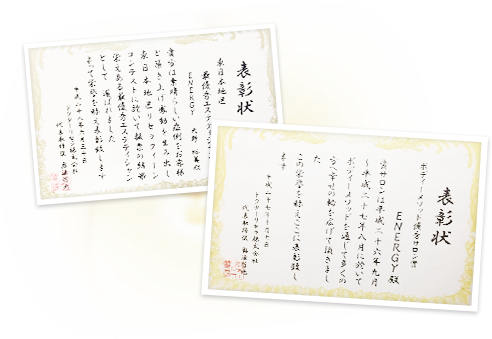 表彰状
東日本地区
最優秀エステティシャン賞
ENERGY
貴方は素晴らしい症例をお客様
と築き上げ感動を生み出し
東日本地区リセックリーン
コンテストに於いて投票の結果
栄えある最優秀エステティシャン
として選ばれました
よって栄誉を称え表彰致します
平成二十八年六月三十日
代表取締役
表彰状
ボディーメソッド優秀サロン賞
ENERGY殿
貴サロンは平成二十六年九月
〜平成二十七年八月に於いて
ボディーメソッドを通じて多くの
方へ幸せの輪を広げて頂きまし
た
この栄誉を称えここに表彰致し
ます
平成二十七年十月
代表取締役